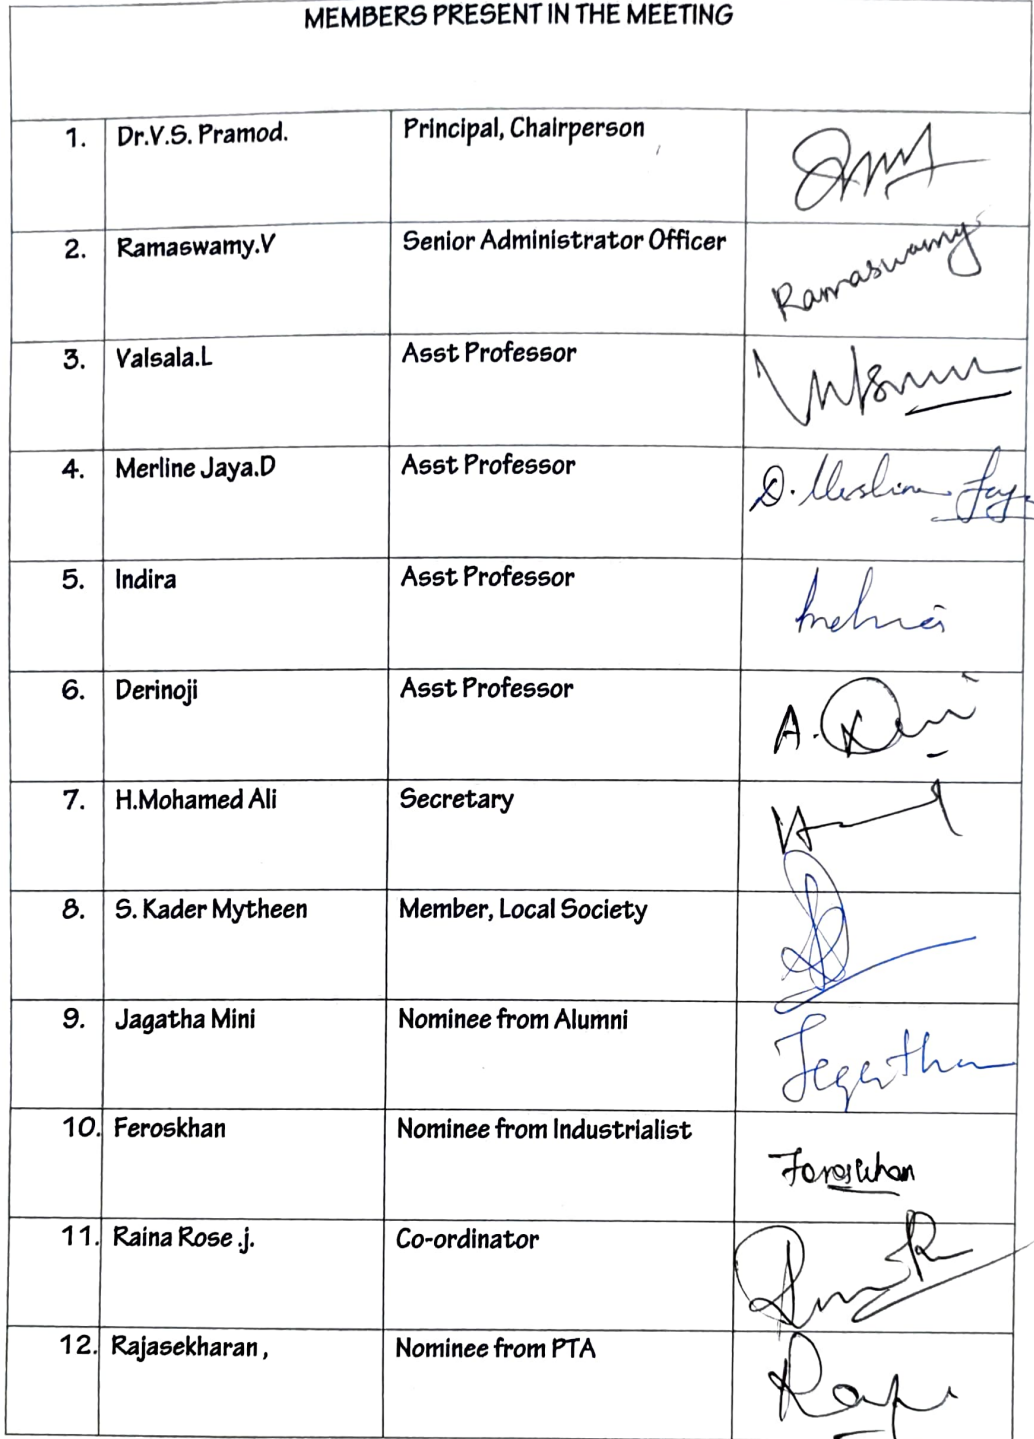 MEMBERS PRESENT IN THE MEETING
1. Dr.V.S. Pramod. Principal, Chairperson
2. Ramaswamy.V Senior Administrator Officer Ramaswamy
3. Valsala.L Asst Professor
4. Merline Jaya.D Asst Professor D. Merline Jaya
5. Indira Asst Professor Indira
6. Derinoji Asst Professor A.
7. H.Mohamed Ali Secretary
8. S. Kader Mytheen Member, Local Society
9. Jagatha Mini Nominee from Alumni
10. Feroskhan Nominee from Industrialist
11. Raina Rose .j. Co-ordinator
12. Rajasekharan , Nominee from PTA